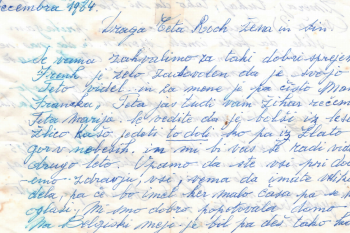 ecembra 1934.
Draga Teta Roch žena in sin.
Se vama zahvalimo za taki dobri sprejem
Frenk je zelo zadovolen da je svojo
Teto videl in za mene je pa čisto
Teta jas tudi vam zihar rečem
Teta Marija. Se vedite da je bolši iz lese
žlico kašo jedati to doli, ko pa iz zlato
gori nebesih. in mi bi vas še radi vid
drugo leto. Vzamo da ste vsi pri dob
emo zdravju, vse, vema da imate
dela, pa če bo imel ker malo časa pa se
oglasi. Mi smo dobro popotovala
Na Belgiski meje je bil pa deš tako